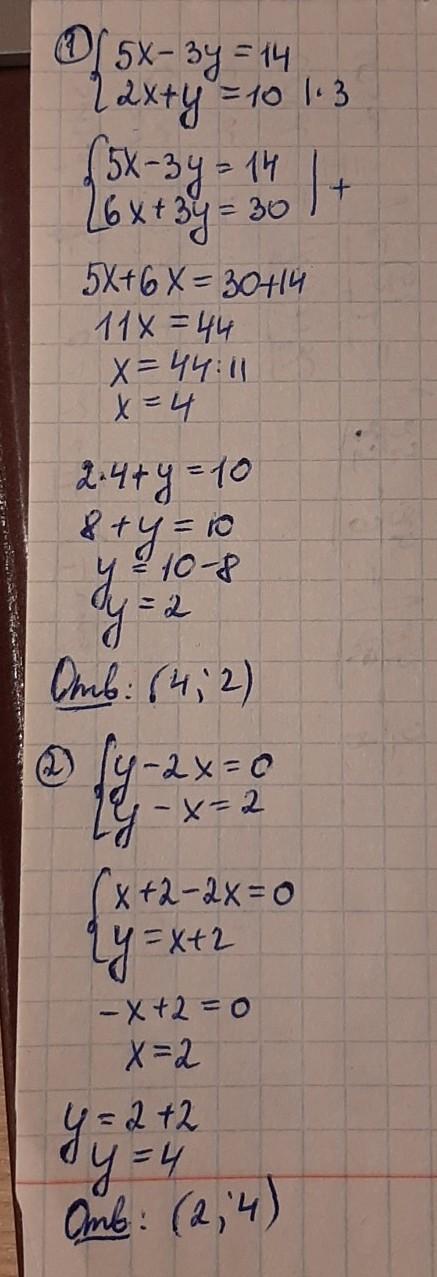 ① { 5x - 3y = 14
2x + y = 10 | · 3
{ 5x - 3y = 14
6x + 3y = 30 | +
5x + 6x = 30 + 14
11x = 44
x = 44 : 11
x = 4
2 · 4 + y = 10
8 + y = 10
y = 10 - 8
y = 2
Отв: (4; 2)
② { y - 2x = 0
y - x = 2
{ x + 2 - 2x = 0
y = x + 2
-x + 2 = 0
x = 2
y = 2 + 2
y = 4
Отв: (2; 4)